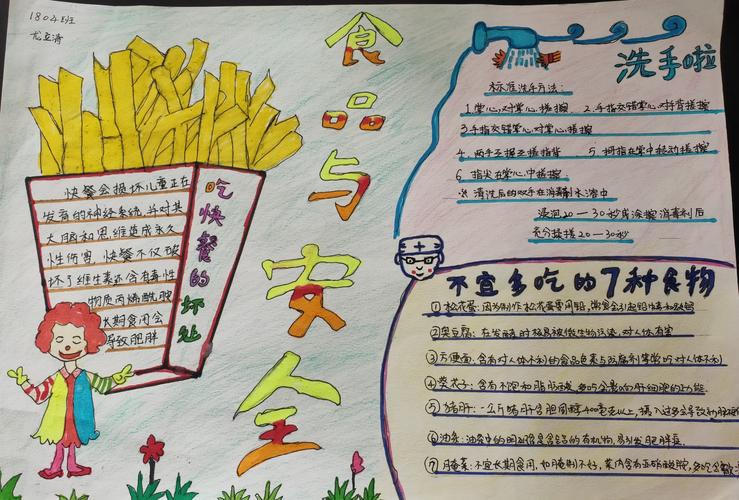 1804班
尤立清
食品与安全
吃快餐的坏处
快餐会损坏儿童正在
发育的神经系统,并对其
大脑和思维造成永久
性伤害,快餐不仅破
坏了维生素还含有毒性
物质丙烯酰胺
长期食用会
导致肥胖
洗手啦
标准洗手方法:
1.掌心,对掌心,搓擦 2.手指交错掌心,对手背搓擦
3手指交错掌心,对掌心,搓擦
4.两手互握互搓指背 5.拇指在掌中转动搓擦
6 指尖在掌心,中搓擦
※清洗后的双手在消毒剂水溶中
浸泡20—30秒或涂擦消毒剂后
充分揉搓20—30秒
不宜多吃的7种食物
①松花蛋:因为制作松花蛋要用铅,常食会引起铅
②臭豆腐:在发酵时极易被微生物污染,对人体有害
③方便面:含有对人体不利的食品色素与防腐剂等常吃对人体不利
④葵花子:含有不饱和脂肪酸,多吃会影响肝细胞的功能
⑤猪肝:一公斤猪肝含胆固醇400毫克以上,摄入过多会导致动脉
⑥油条:油条中的明矾是含铝的有机物,易引发肥胖症
⑦腌菜:不宜长期食用,如腌制不好,菜内含有亚硝酸胺,